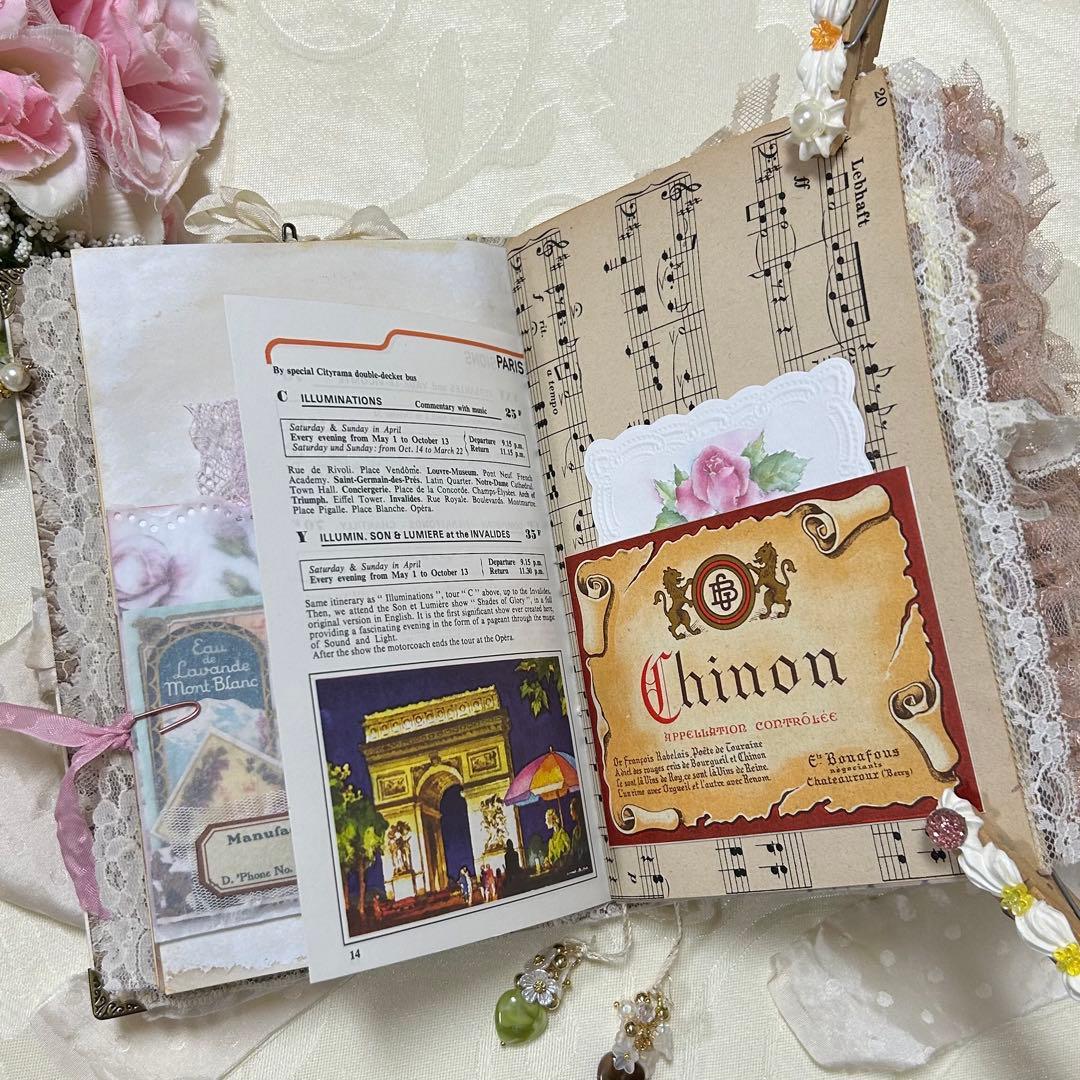 PARIS
By special Cityrama double-decker bus
C ILLUMINATIONS Commentary with music 25F
Saturday & Sunday in April
Every evening from May 1 to October 13
Saturday und Sunday: from Oct. 14 to March 22
Departure 9.15 p.m.
Return 11.15 p.m.
Rue de Rivoli. Place Vendôme. Louvre-Museum. Pont Neuf French
Academy. Saint-Germain-des-Prés. Latin Quarter. Notre-Dame Cathedral.
Town Hall. Conciergerie. Place de la Concorde. Champs-Elysées. Arch of
Triumph. Eiffel Tower. Invalides. Rue Royale. Boulevards. Montmartre.
Place Pigalle. Place Blanche. Opéra.
Y ILLUMIN. SON & LUMIERE at the INVALIDES 35F
Saturday & Sunday in April
Every evening from May 1 to October 13
Departure 9.15 p.m.
Return 11.30 p.m.
Same itinerary as " Illuminations ", tour " C " above, up to the Invalides.
Then, we attend the Son et Lumière show " Shades of Glory ", in a full
original version in English. It is the first significant show ever created here,
providing a fascinating evening in the form of a pageant through the magic
of Sound and Light.
After the show the motorcoach ends the tour at the Opéra.
14
Eau
de
Lavande
Mont Blanc
Manufa
D. 'Phone No.
20
Lebhaft
ff
f
rit.
a tempo
Chinon
APPELLATION CONTRÔLÉE
Or François Rabelais Poête de Touraine
Adict des rouges crûs de Bourgueil et Chinon
Ce sont là Vins de Roy, ce sont là Vins de Reine
L'un rime avec Orgueil et l'autre avec Renom.
Ets Bonafous
négociants
Chateauroux (Berry)